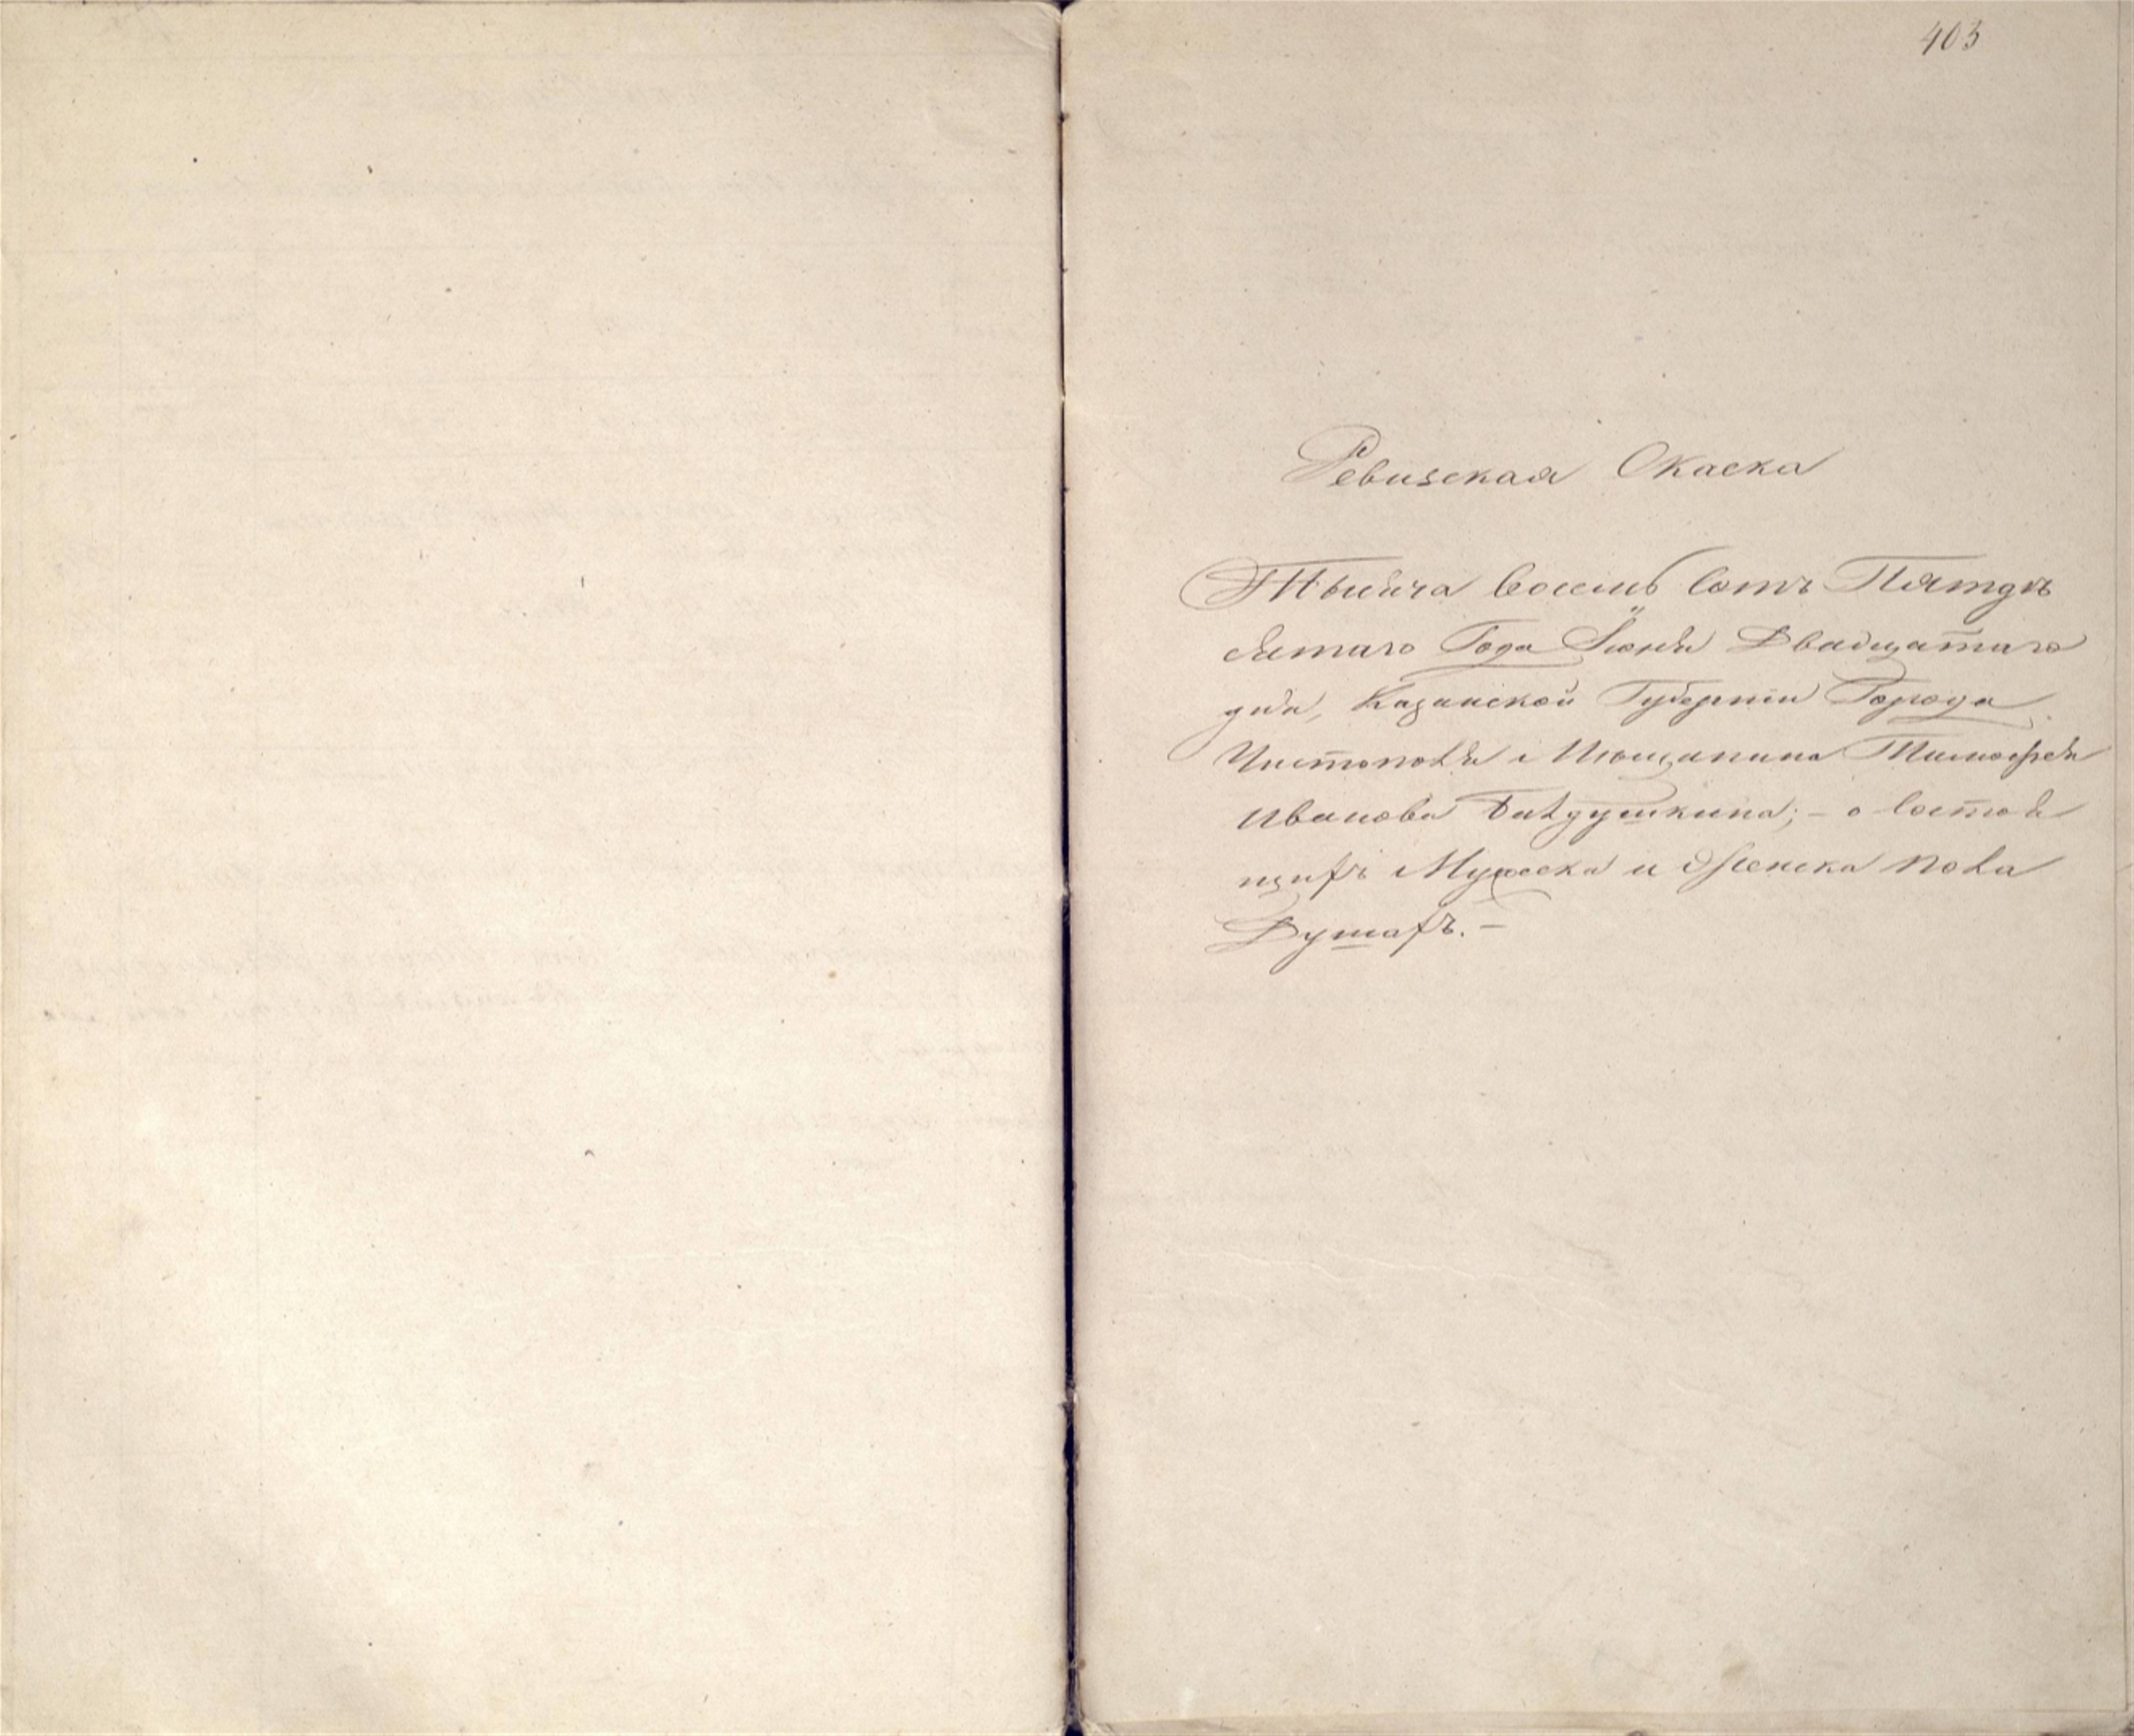 403
Ревизская Скаска
Тысяча восемь сотъ Пятдѣ
сятаго Года Іюня Двадцатаго
дня, Казанской Губерніи Города
Чистополя Мѣщанина Тимофея
Иванова о состоя
щихъ Мужеска и Женска пола
Душахъ. —